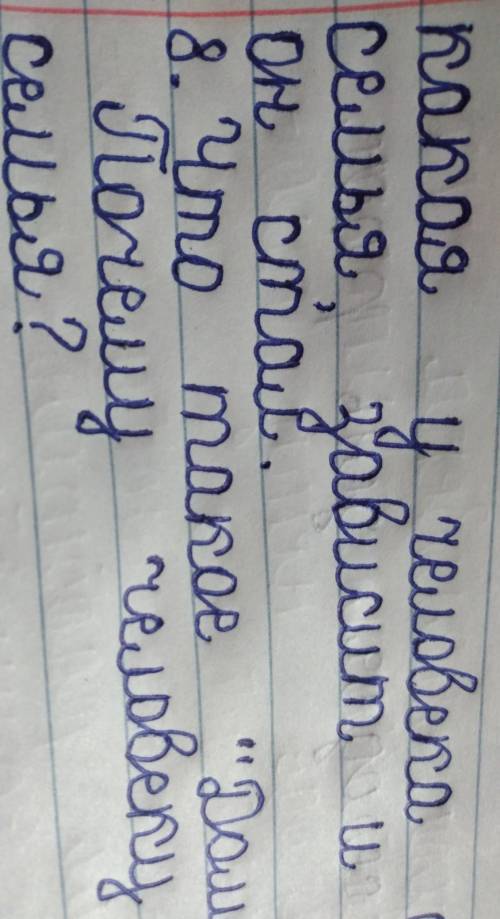 какая у человека
семья, зависит и
он стал.
8. Что такое "Дом
Почему человеку
семья?